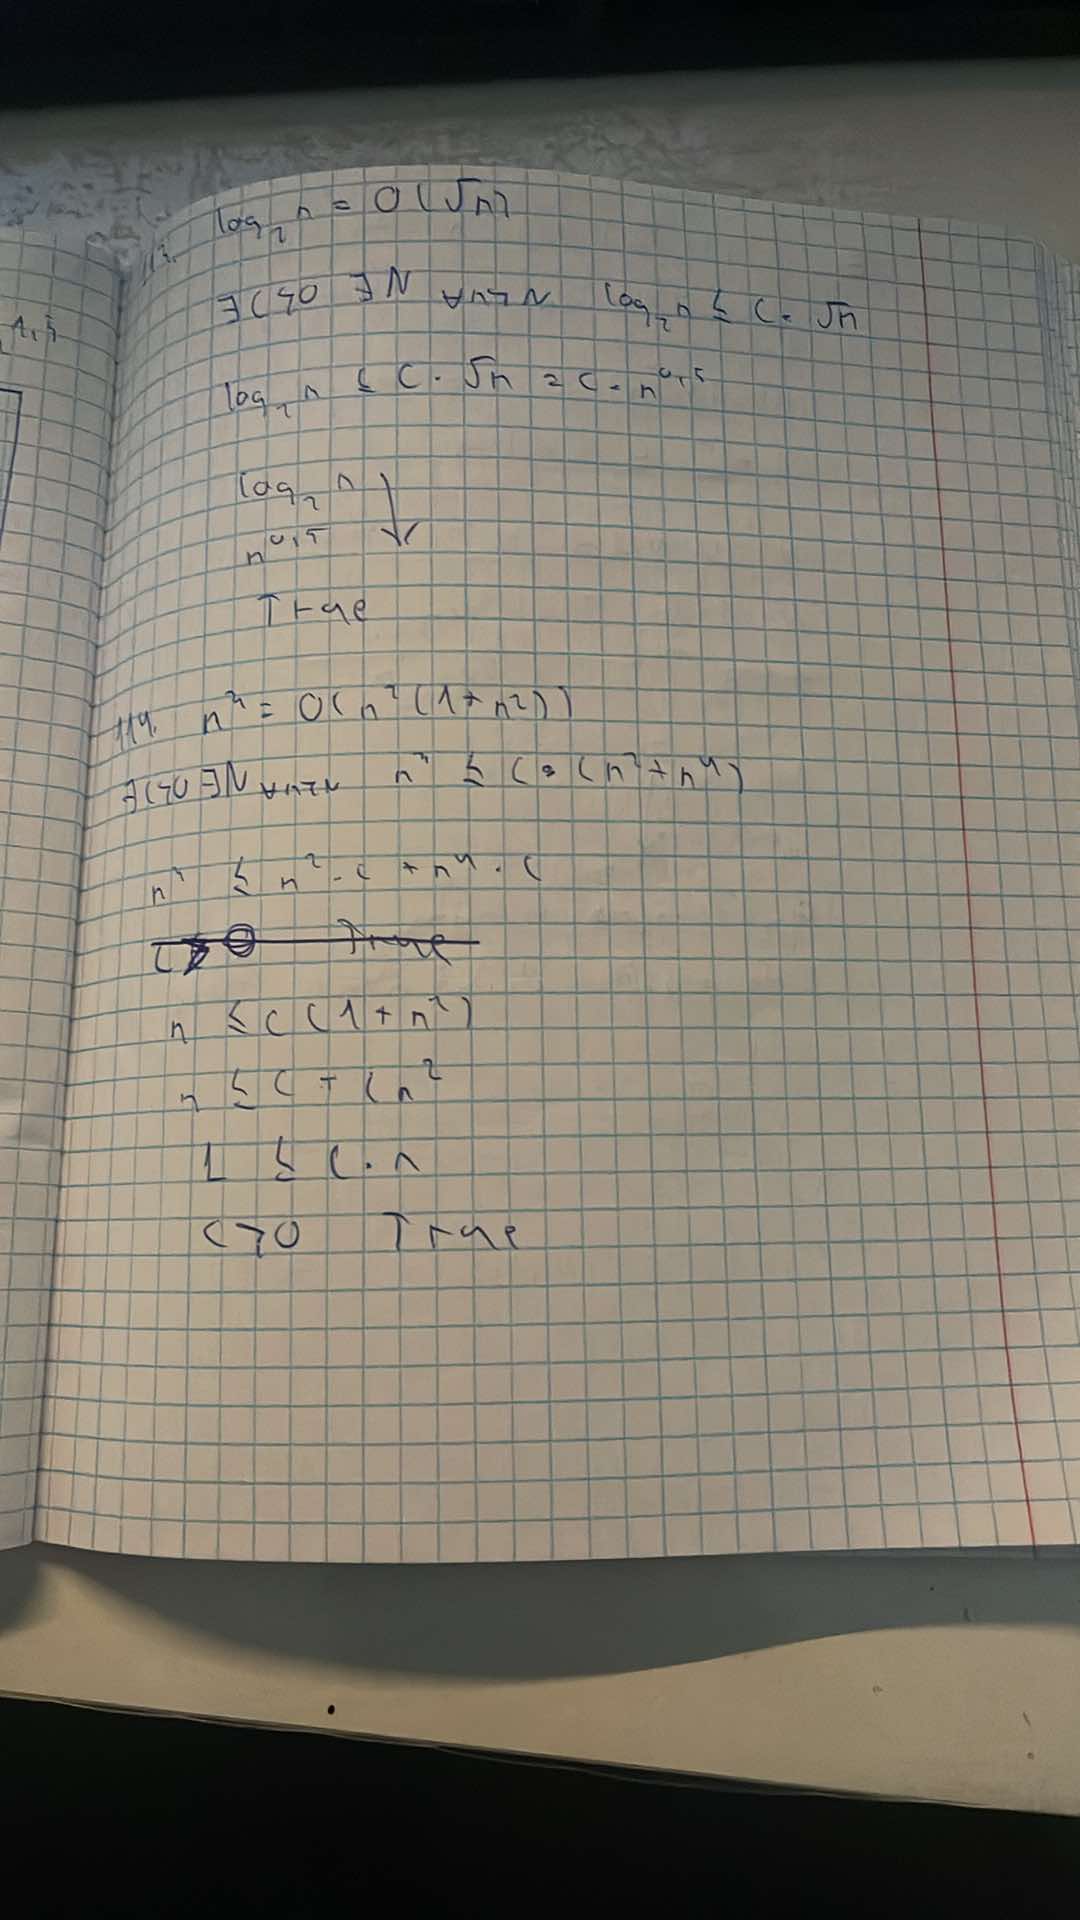 113. log₂ n = O(√n)
∃C>0 ∃N ∀n≥N log₂ n ≤ C · √n
log₂ n ≤ C · √n = C · n^0,5
log₂ n
n^0,5
True
114. n³ = O(n²(1+n²))
∃C>0 ∃N ∀n≥N n³ ≤ C · (n²+n⁴)
n³ ≤ n² · C + n⁴ · C
n ≤ C(1+n²)
n ≤ C + Cn²
1 ≤ C · n
C>0 True